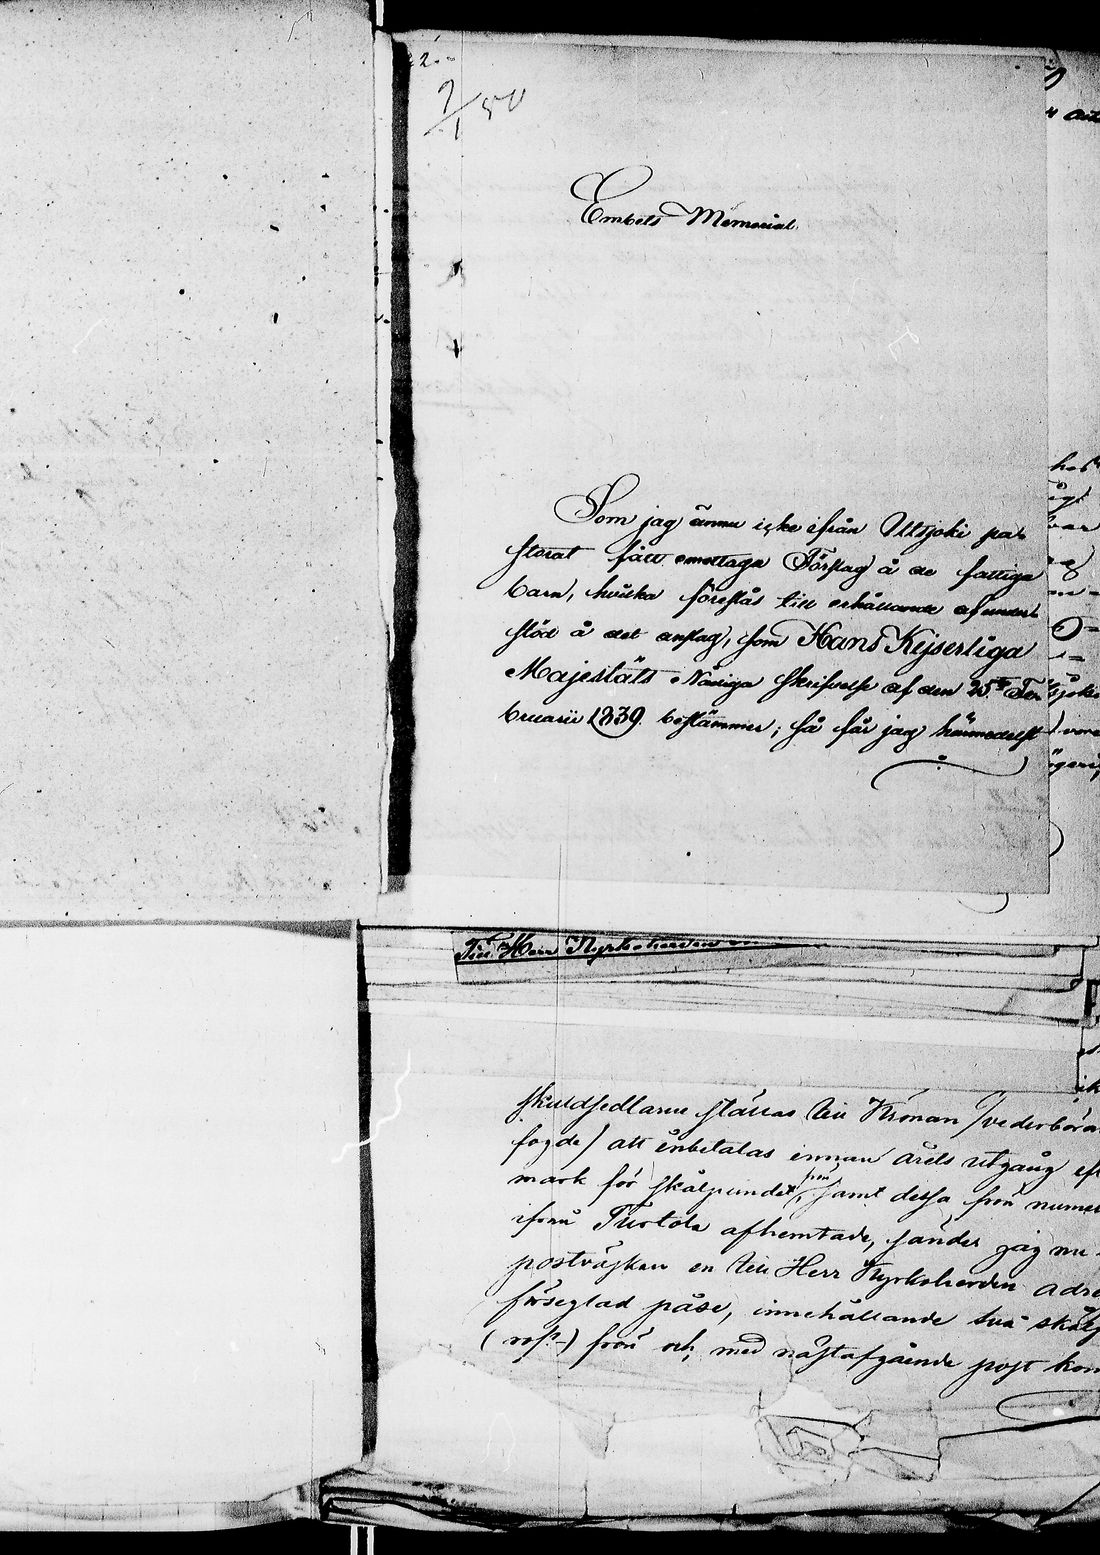 2.
9/1 50
Embets Memorial.
Som jag ännu icke ifrån Uttsjoki pa-
storat fått emottaga Förslag å de fattiga
barn, hvilka föreslås till erhållande af under-
stöd å det anslag, som Hans Kejserliga
Majestäts Nådiga Skrifvelse af den 25te Fe-
bruarii 1839. bestämmer; så får jag härmedelst
Till Herr Kyrkoherden
skuldsedlarne ställas till Kronan /vederböra
fogde/ att inbetalas innan årets utgång
mark för skålpundet, samt dessa frön
ifrån Turtola afhemtade, sänder jag nu
postväskan en till Herr Kyrkoherden adre
förseglad påse, innehållande två
frön och, med nästafgående post kom